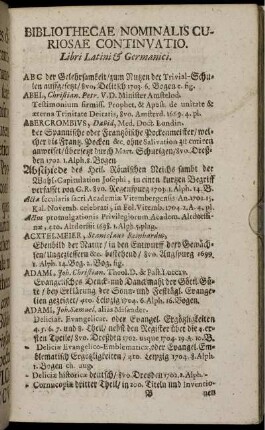 BIBLIOTHECAE NOMINALIS CU-
RIOSAE CONTINVATIO.
Libri Latini & Germanici.
ABC der Gelehrsamkeit / zum Nutzen der Trivial-Schu-
len aufgesetzt / 8vo, 1703. 6. Bogen c. fig.
ABEL, Christian. Petr. V.D. Minister Amstelod.
Testimonium firmiss. Prophet. & Apost. de unitate &
æterna Trinitate Deitatis, 8vo. Amsterd. 1689. 4. pl.
ABERCROMBIUS, David, Med. Doct. Londin.
der Spannische oder Frantzösische Pockenmeister / wel-
cher die Frantz. Pocken &c. ohne Salivation zu curiren
anweiset / übersetzt durch Mart. Schurigen / 8vo. Dreß-
den 1702. 1. Alph. 2. Bogen.
Abschiede des Heil. Römischen Reichs samht der
Wahl-Capitulation Josephi, in einen kurtzen Begriff
verfasset von C.R. 8vo. Regenspurg 1703. 1. Alph. 14. B.
Acta secularis sacri Academiæ Vitembergensis An. 1702. 15.
Kal. Novemb. celebrati, in Fol. Vitemb. 1704. 2. A. 4. pl.
Actus promulgationis Privilegiorum Academ. Altdorfi-
næ, 4to, Altdorfii 1698. 1. Alph. 5. plag.
ACXTELMEIER, Stanislaus Reinhardus,
Ebenbild der Natur / in den Entwurff derer Gewäch-
sen / Ungeziessern &c. bestehend / 8vo. Augspurg 1699.
2. Alph. 14. Bog. 2. Bog. fig.
ADAMI, Joh. Christian. Theol. D. & Past. Luccav.
Evangelisches Denck- und Danckmahl der Göttl. Gü-
te / bey Erklärung der Sonn- und Festtägl. Evange-
lien gezeiget / 4to. Leipzig 1704. 6. Alph. 16. Bogen.
ADAMI, Joh. Samuel, alias Misander.
- Deliciæ Evangelicæ. oder Evangel. Ergötzligkeiten
4. 5. 6. 7. und 8. Theil / nebst den Register über die 4. er-
sten Theile / 8vo. Dreßden 1702. usque 1704. 19. A. 10. B.
- Delicia Evangelico-Emblematicæ, oder Evangel. Em-
blematisch Ergötzligkeiten / 4to. Leipzig 1704. 8. Alph.
1. Bogen ch. aug.
- Deliciæ historicæ deutsch / 8vo. Dreßden 1702. 1. Alph.
- Cornucopiæ dritter Theil / in 200. Titeln und Inventio-
B nen